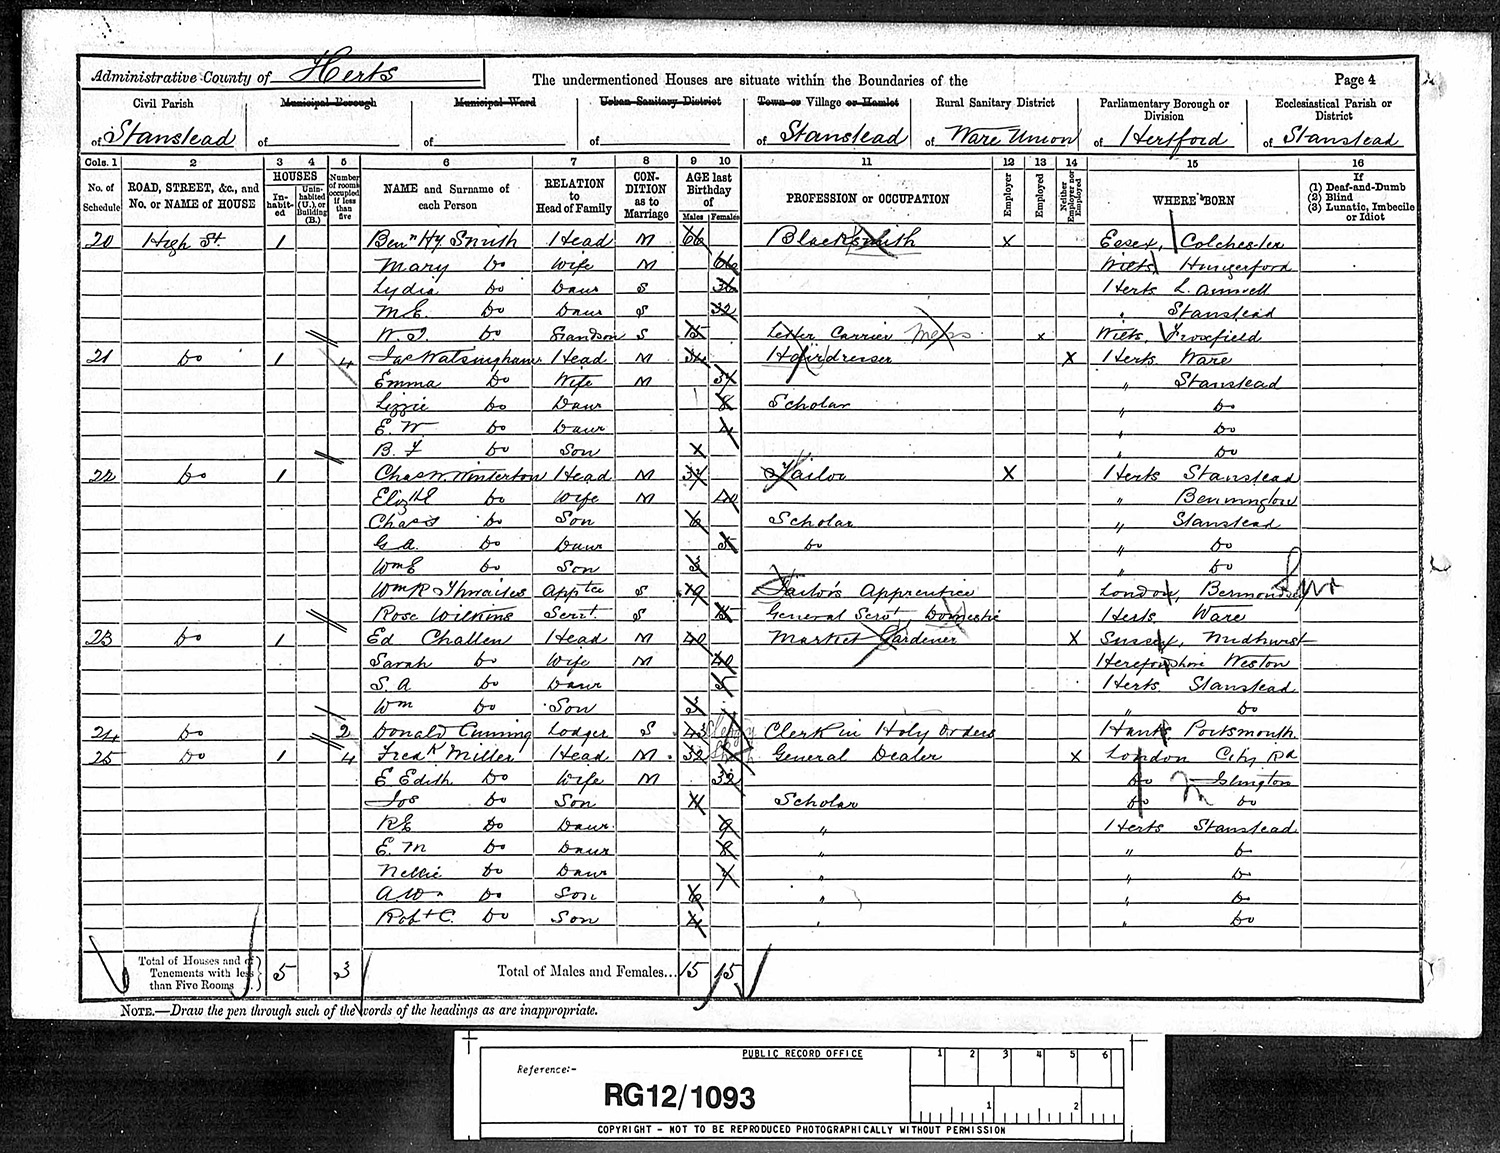 Administrative County of Herts
The undermentioned Houses are situate within the Boundaries of the
Page 4
Civil Parish of Stanstead
Municipal Borough of
Municipal Ward of
Urban Sanitary District of
Town or Village or Hamlet of Stanstead
Rural Sanitary District of Ware Union
Parliamentary Borough or Division of Hertford
Ecclesiastical Parish or District of Stanstead
Cols. 1 2 3 4 5 6 7 8 9 10 11 12 13 14 15 16
No. of Schedule
ROAD, STREET, &c., and No. or NAME of HOUSE
HOUSES
In-habit-ed
Unin-habited (U.), or Building (B.)
Number of rooms occupied if less than five
NAME and Surname of each Person
RELATION to Head of Family
CON-DITION as to Marriage
AGE last Birthday of
Males Females
PROFESSION or OCCUPATION
Employer
Employed
Neither Employer nor Employed
WHERE BORN
If
(1) Deaf-and-Dumb
(2) Blind
(3) Lunatic, Imbecile or Idiot
20 High St. 1 Benn Hy Smith Head M 66 Blacksmith X Essex, Colchester
Mary Do Wife M 66 Wilts Hungerford
Lydia Do Daur S 36 Herts
M.E. Do Daur S 32 " Stanstead
Do Grandson S 15 Letter Carrier x Wilts, Froxfield
21 Do 1 4 Jas Watsingham Head M 34 Hairdresser X Herts Ware
Emma Do Wife M 34 " Stanstead
Lizzie Do Daur 8 Scholar " Do
E. W Do Daur 4 " Do
Do Son " Do
22 Do 1 Chas W. Winterton Head M 34 Tailor X Herts Stanstead
Do Wife M 40 " Bennington
Do Son 6 Scholar " Stanstead
G A. Do Daur 5 Do " Do
Wm E Do Son 3 " Do
Wm R Thwaites Apptce S 19 Tailor's Apprentice London, Bermondsey
Rose Wilkins Servt. S 15 General Servt Domestic Herts, Ware
23 Do 1 Ed Challen Head M 40 Market Gardener X Sussex, Midhurst
Sarah Do Wife M 40 Herefordshire Weston
S. A Do Daur 5 Herts Stanstead
Wm Do Son 3 " Do
24 Do 2 Donald Cuming Lodger S 43 Clerk in Holy Orders Hants Portsmouth
25 Do 1 4 Fredk Miller Head M. 32 General Dealer X London City Rd
E Edith Do Wife M 32 Do Islington
Jos Do Son 11 Scholar Do Do
R E Do Daur. 9 " Herts Stanstead
E. M Do Daur 8 " " Do
Nellie Do Daur 7 " " Do
A W Do Son 6 " " Do
Robt C. Do Son 4 " " Do
Total of Houses and of Tenements with less than Five Rooms 5 3
Total of Males and Females... 15 15
NOTE.—Draw the pen through such of the words of the headings as are inappropriate.
PUBLIC RECORD OFFICE
1 2 3 4 5 6
Reference:-
RG12/1093
1 2
COPYRIGHT - NOT TO BE REPRODUCED PHOTOGRAPHICALLY WITHOUT PERMISSION